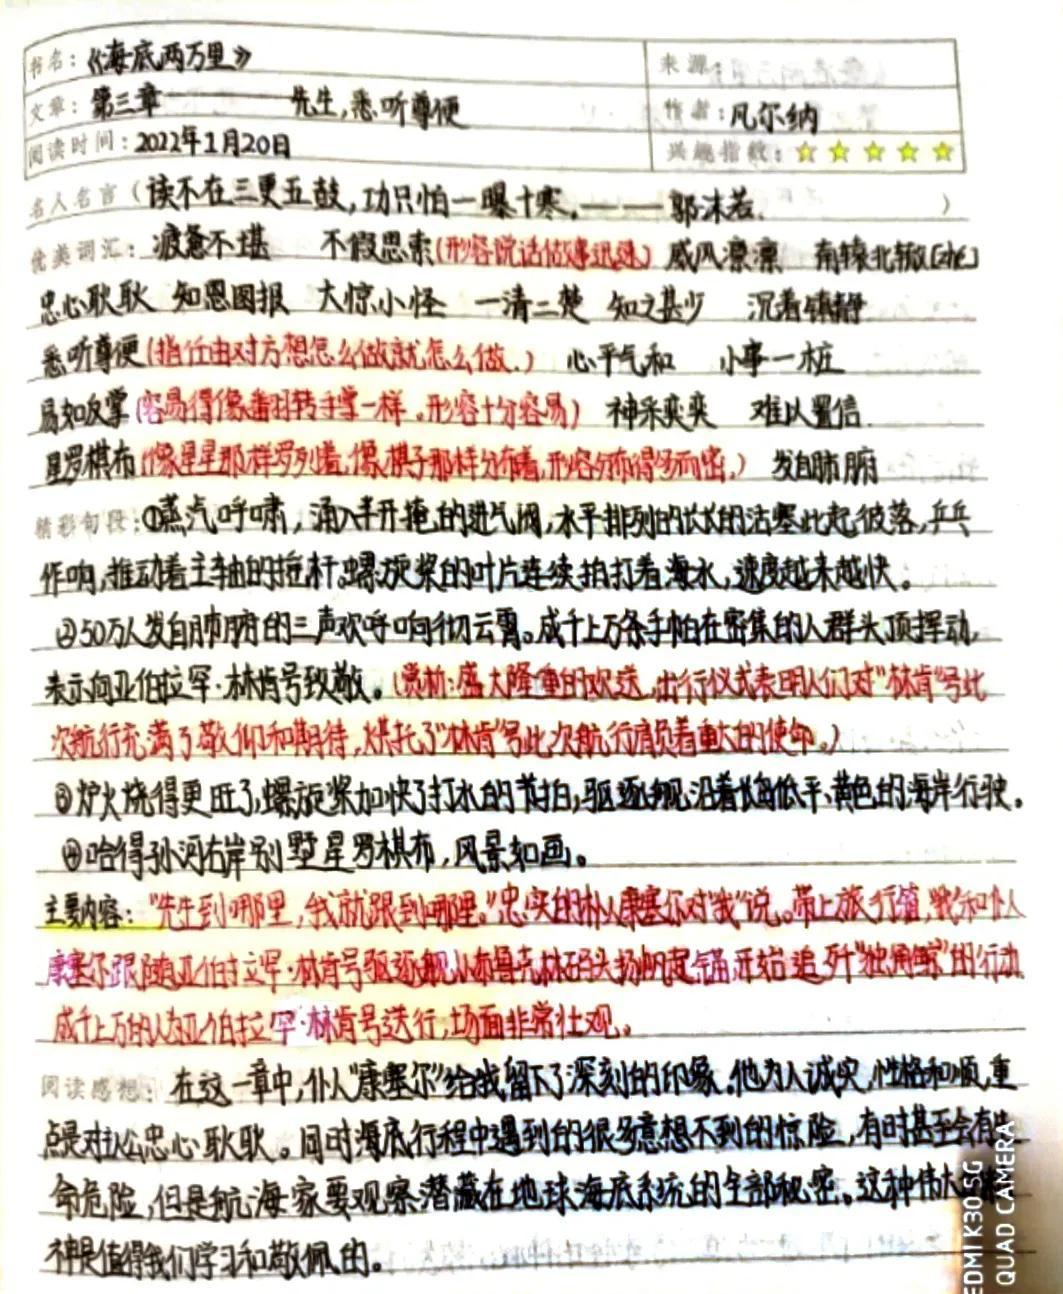 书名：《海底两万里》 来源：
文章：第三章——先生,悉听尊便 作者：凡尔纳
阅读时间：2022年1月20日 兴趣指数：☆☆☆☆☆
名人名言（读不在三更五鼓,功只怕一曝十寒.——郭沫若.）
优美词汇：疲惫不堪 不假思索(形容说话做事迅速) 威风凛凛 南辕北辙[zhé]
忠心耿耿 知恩图报 大惊小怪 一清二楚 知之甚少 沉着镇静
悉听尊便(指任由对方想怎么做就怎么做.) 心平气和 小事一桩
易如反掌(容易得像翻转手掌一样.形容十分容易) 神采奕奕 难以置信
星罗棋布(像星星那样罗列着,像棋子那样分布着,形容分布得多而密.) 发自肺腑
精彩句段：①蒸汽呼啸,涌入半开掩的进气阀,水平排列的长长的活塞此起彼落,乒乓
作响,推动着主轴的拉杆。螺旋桨的叶片连续拍打着海水,速度越来越快。
②50万人发自肺腑的三声欢呼响彻云霄。成千上万条手帕在密集的人群头顶挥动,
表示向亚伯拉罕·林肯号致敬。(赏析:盛大隆重的欢送,出行仪式表明人们对"林肯"号此
次航行充满了敬仰和期待,烘托了"林肯"号此次航行肩负着重大的使命。)
③炉火烧得更旺了,螺旋桨加快了打水的节拍,驱逐舰沿着长岛低平、黄色的海岸行驶。
④哈得孙河右岸别墅星罗棋布,风景如画。
主要内容："先生到哪里,我就跟到哪里。"忠实的仆人康塞尔对"我"说。带上旅行箱,我和仆人
康塞尔跟随亚伯拉罕·林肯号驱逐舰从布鲁克林码头扬帆起锚开始追歼"独角鲸"的行动
成千上万的人为亚伯拉罕·林肯号送行,场面非常壮观。
阅读感想：在这一章中,仆人"康塞尔"给我留下了深刻的印象。他为人诚实,性格和顺,重
点是对主人忠心耿耿。同时海底行程中遇到的很多意想不到的惊险,有时甚至会有生
命危险,但是航海家要观察潜藏在地球海底系统的全部秘密。这种伟大精
神是值得我们学习和敬佩的。
REDMI K30 5G
QUAD CAMERA